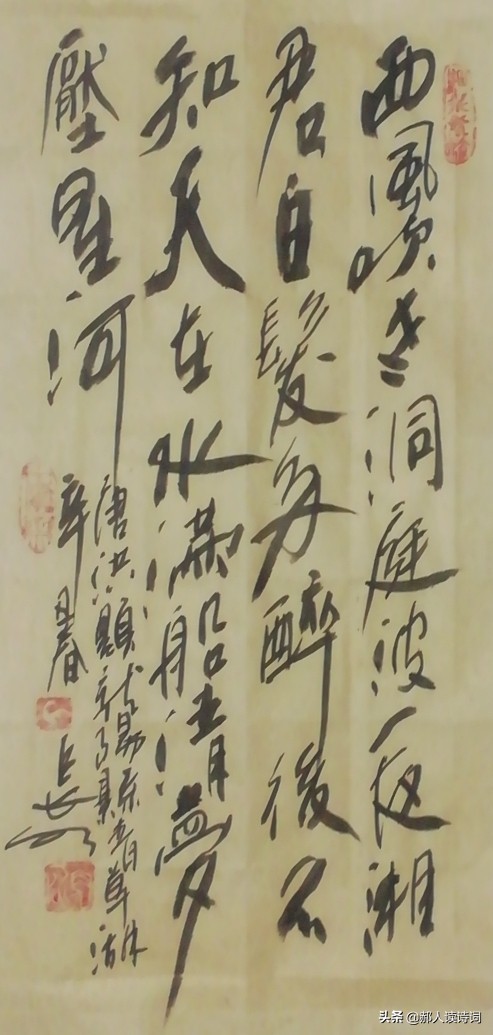 西風吹老洞庭波一夜湘
君白髮多醉後不
知天在水滿船清夢
壓星河
唐珙題龍陽縣青草湖
辛丑春
头条 @郝人读诗词